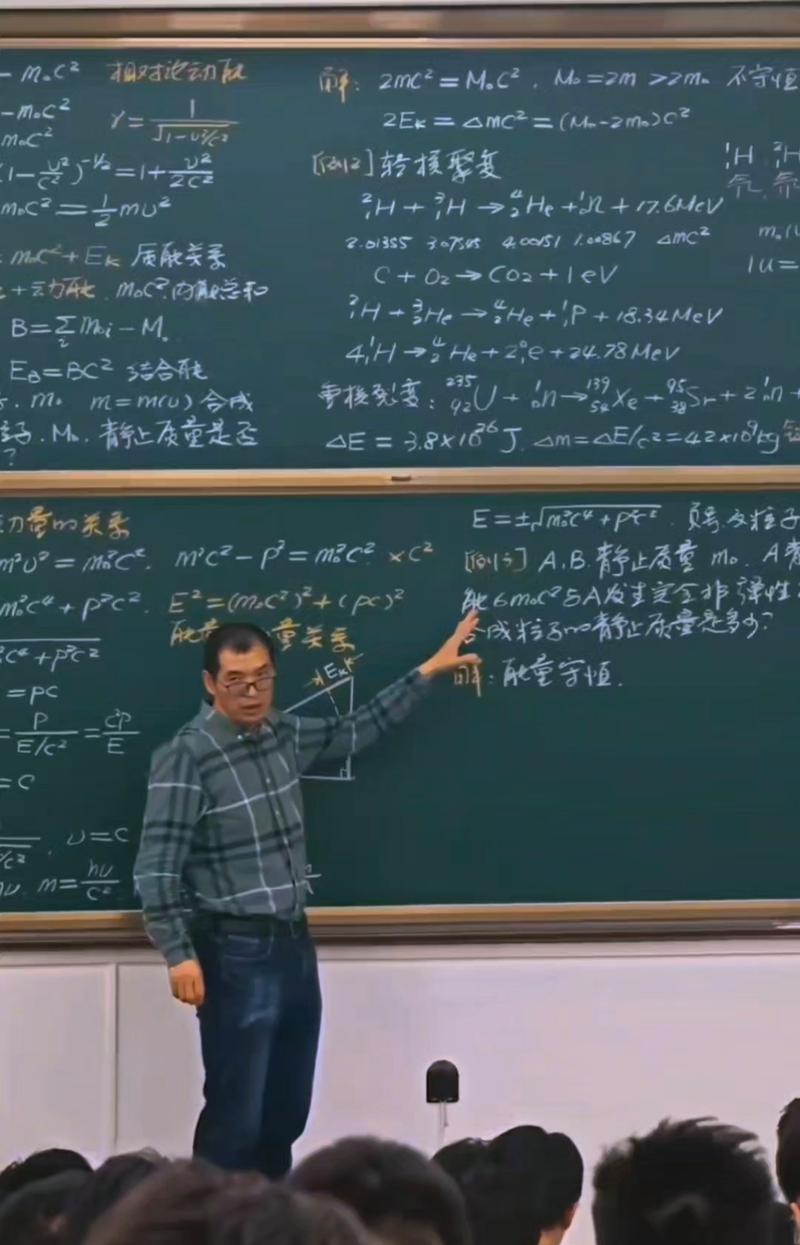 - m₀c² 相对论动能
- m₀c² γ = 1/√(1-υ²/c²)
m₀c²
(1 - υ²/c²)^(-1/2) = 1 + υ²/2c²
m₀c² = ½mυ²
m₀c² + Eₖ 质能关系
+ 动能. m₀c² 内能总和
B = Σᵢ m₀ᵢ - M₀
E_B = BC² 结合能
m₀ m = m(υ) 合成
粒子. M₀. 静止质量是否
?
解: 2mc² = M₀c². M₀ = 2m > 2m₀ 不守恒
2Eₖ = Δmc² = (M₀ - 2m₀)c²
[例2] 轻核聚变
²₁H + ³₁H → ⁴₂He + ¹₀n + 17.6MeV
2.01355 4.00151 1.00867 Δmc²
C + O₂ → CO₂ + 1eV
²₁H + ³₂He → ⁴₂He + ¹₁P + 18.34MeV
4¹₁H → ⁴₂He + 2⁰₁e + 24.78MeV
重核裂变: ²³⁵₉₂U + ¹₀n → ¹³⁹₅₄Xe + ⁹⁵₃₈Sr + 2¹₀n +
ΔE = 3.8×10²⁶J. Δm = ΔE/c² = 4.2×10⁹kg
¹₁H ²₁H
氕.
1u =
动量的关系
m²υ² = m₀²c². m²c² - p² = m₀²c². ×c²
m₀²c⁴ + p²c². E² = (m₀c²)² + (pc)²
能量 量关系
c⁴ + p²c²
= pc
= P/(E/c²) = c²P/E
= c
/c² , υ = c
m = hν/c²
Eₖ
E = ±√(m₀²c⁴ + p²c²) . 负号反粒子
[例3] A.B.静止质量 m₀. A静
能6m₀c²与A发生完全非弹性
合成粒子的静止质量是多少?
解: 能量守恒.